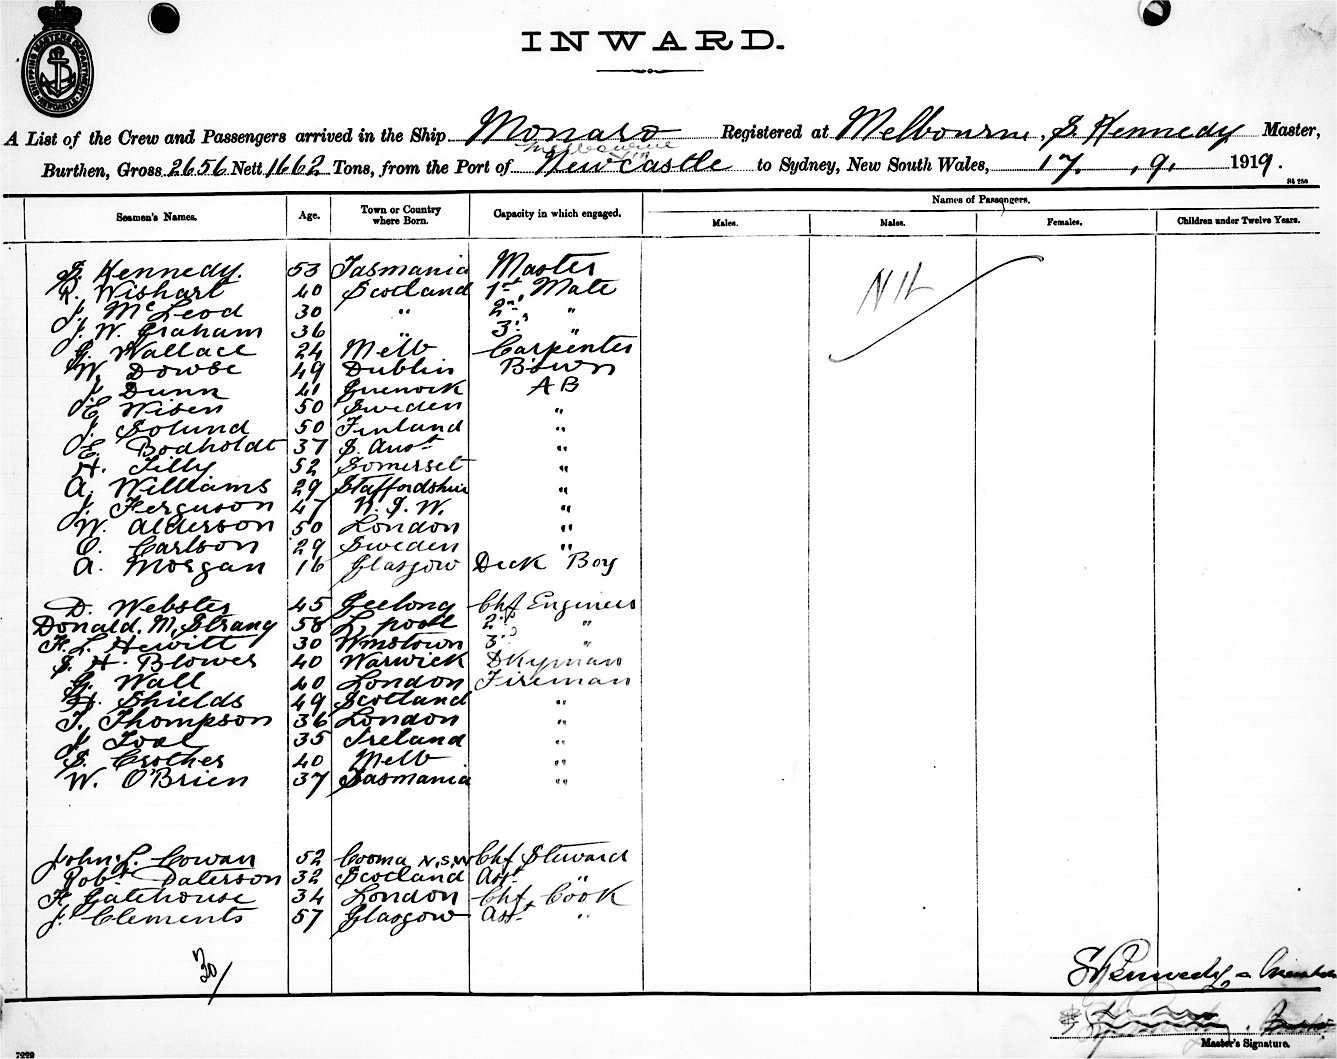 INWARD.
SHIPPING MASTERS DEPARTMENT NEWCASTLE
A List of the Crew and Passengers arrived in the Ship Monaro Registered at Melbourne, S. Kennedy Master,
Melbourne via
Burthen, Gross 2656 Nett 1662 Tons, from the Port of Newcastle to Sydney, New South Wales, 17. , 9, 1919.
Seamen's Names. Age. Town or Country where Born. Capacity in which engaged. Names of Passengers.
Males. Males. Females. Children under Twelve Years.
S. Kennedy. 53 Tasmania Master
R. Wishart 40 Scotland 1st Mate
J. McLeod 30 " 2nd "
J. W. Graham 36 " 3rd "
G. Wallace 24 Melb Carpenter
W. Dowse 49 Dublin B'swn
J. Dunn 41 Greenock AB
E. Wisen 50 Sweden "
J. Solund 50 Finland "
E. Bodholdt 37 S. Aust "
H. Tilly 52 Somerset "
A. Williams 29 Staffordshire "
J. Ferguson 47 N. S. W. "
W. Alderson 50 London "
O. Carlson 29 Sweden "
A. Morgan 16 Glasgow Deck Boy
D. Webster 45 Geelong Chf Engineer
Donald. M. Strang 58 L'pool 2nd "
F. L. Hewitt 30 Wmstown 3rd "
S. H. Blower 40 Warwick Dkyman
G. Wall 40 London Fireman
H. Shields 49 Scotland "
T. Thompson 36 London "
J. Toal 35 Ireland "
S. Crother 40 Melb "
W. O'Brien 37 Tasmania "
John L. Cowan 52 Cooma N.S.W Chf Steward
Robt. Paterson 32 Scotland Asst "
F. Gatehouse 34 London Chf Cook
J. Clements 57 Glasgow Asst "
NIL
30/
S Kennedy
Master's Signature.
7229